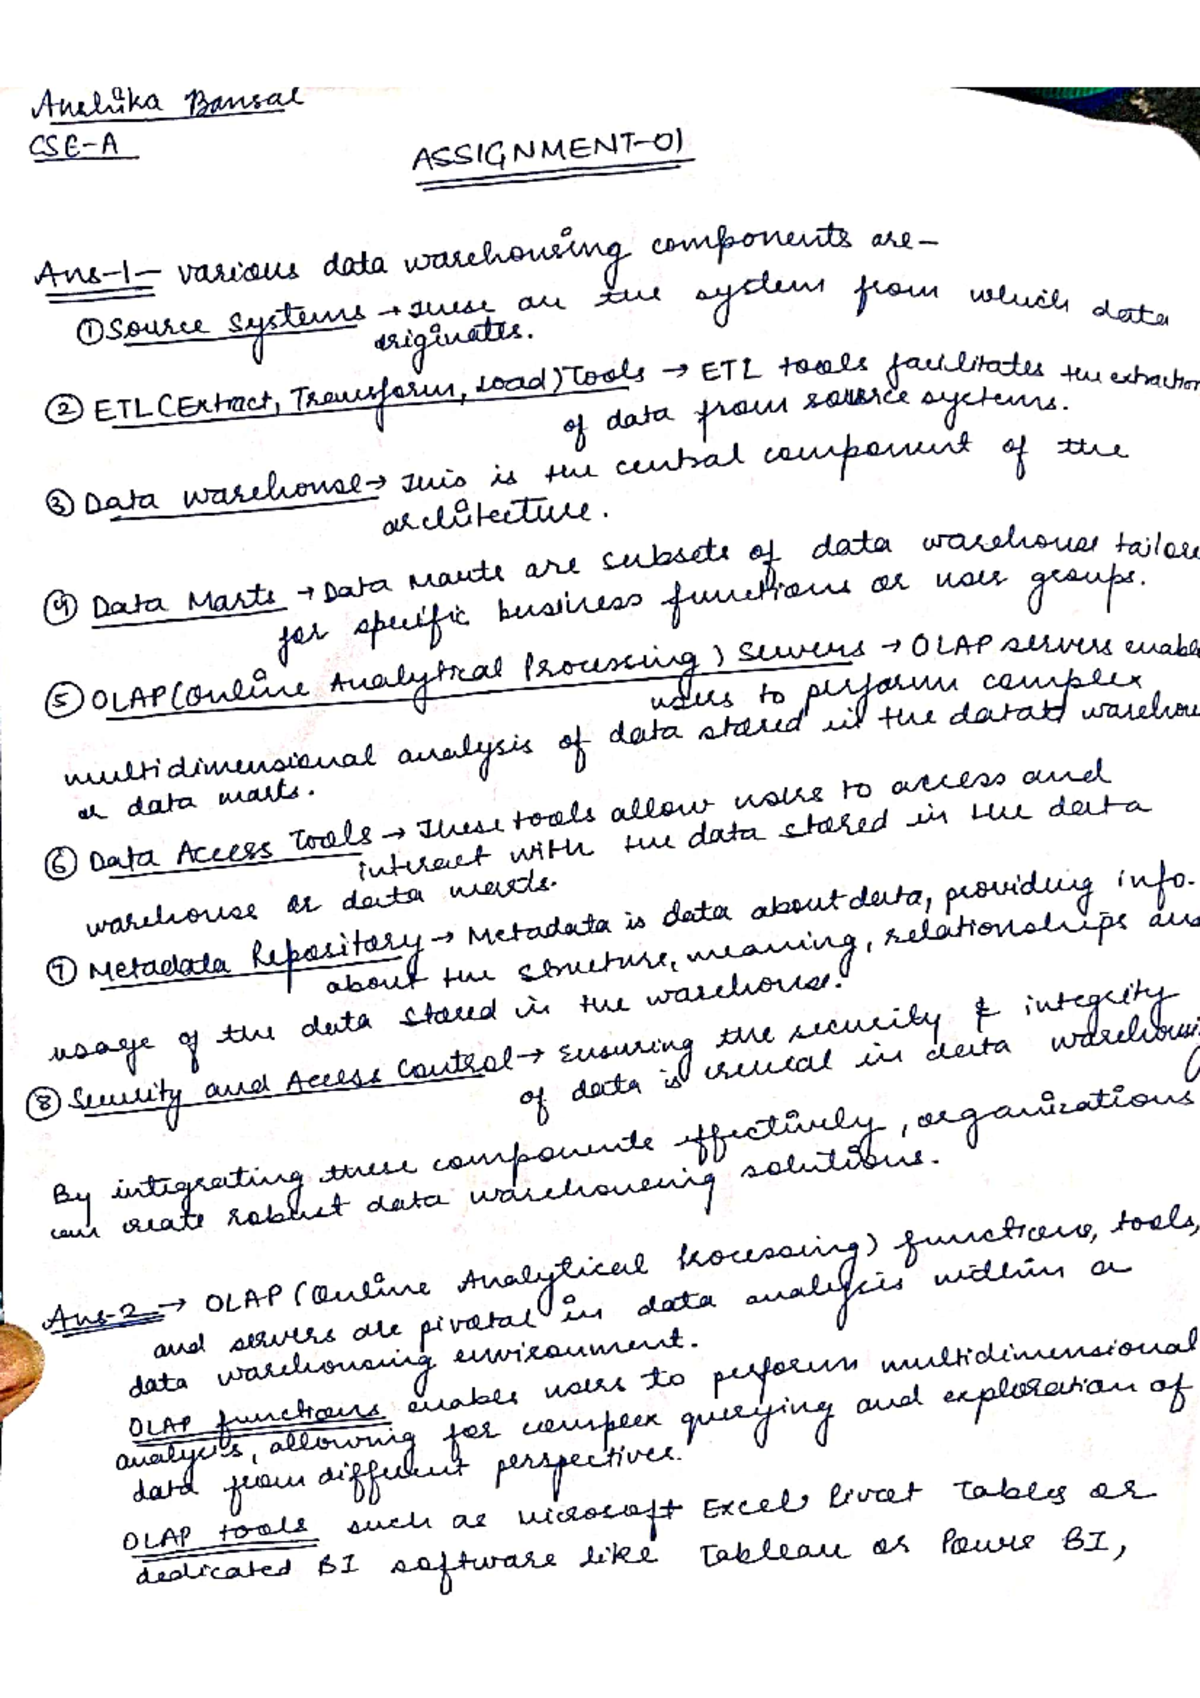 Anshika Bansal
CSE-A
ASSIGNMENT-01
Ans-1- various data warehousing components are-
① Source Systems → These are the system from which data
originates.
② ETL (Extract, Transform, Load) Tools → ETL tools facilitates the extraction
of data from source systems.
③ Data warehouse → This is the central component of the
architecture.
④ Data Marts → Data Marts are subsets of data warehouse tailore
for specific business functions or user groups.
⑤ OLAP (Online Analytical Processing) Servers → OLAP servers enable
users to perform complex
multidimensional analysis of data stored in the data warehou
or data marts.
⑥ Data Access Tools → These tools allow users to access and
interact with the data stored in the data
warehouse or data marts.
⑦ Metadata Repository → Metadata is data about data, providing info.
about the structure, meaning, relationships and
usage of the data stored in the warehouse.
⑧ Security and Access Control → Ensuring the security & integrity
of data is crucial in data warehousi
By integrating these components effectively, organizations
can create robust data warehousing solutions.
Ans-2 → OLAP (Online Analytical Processing) functions, tools,
and servers are pivotal in data analysis within a
data warehousing environment.
OLAP functions enables users to perform multidimensional
analysis, allowing for complex querying and exploration of
data from different perspectives.
OLAP tools such as microsoft Excel Pivot Tables or
dedicated BI software like Tableau or Power BI,